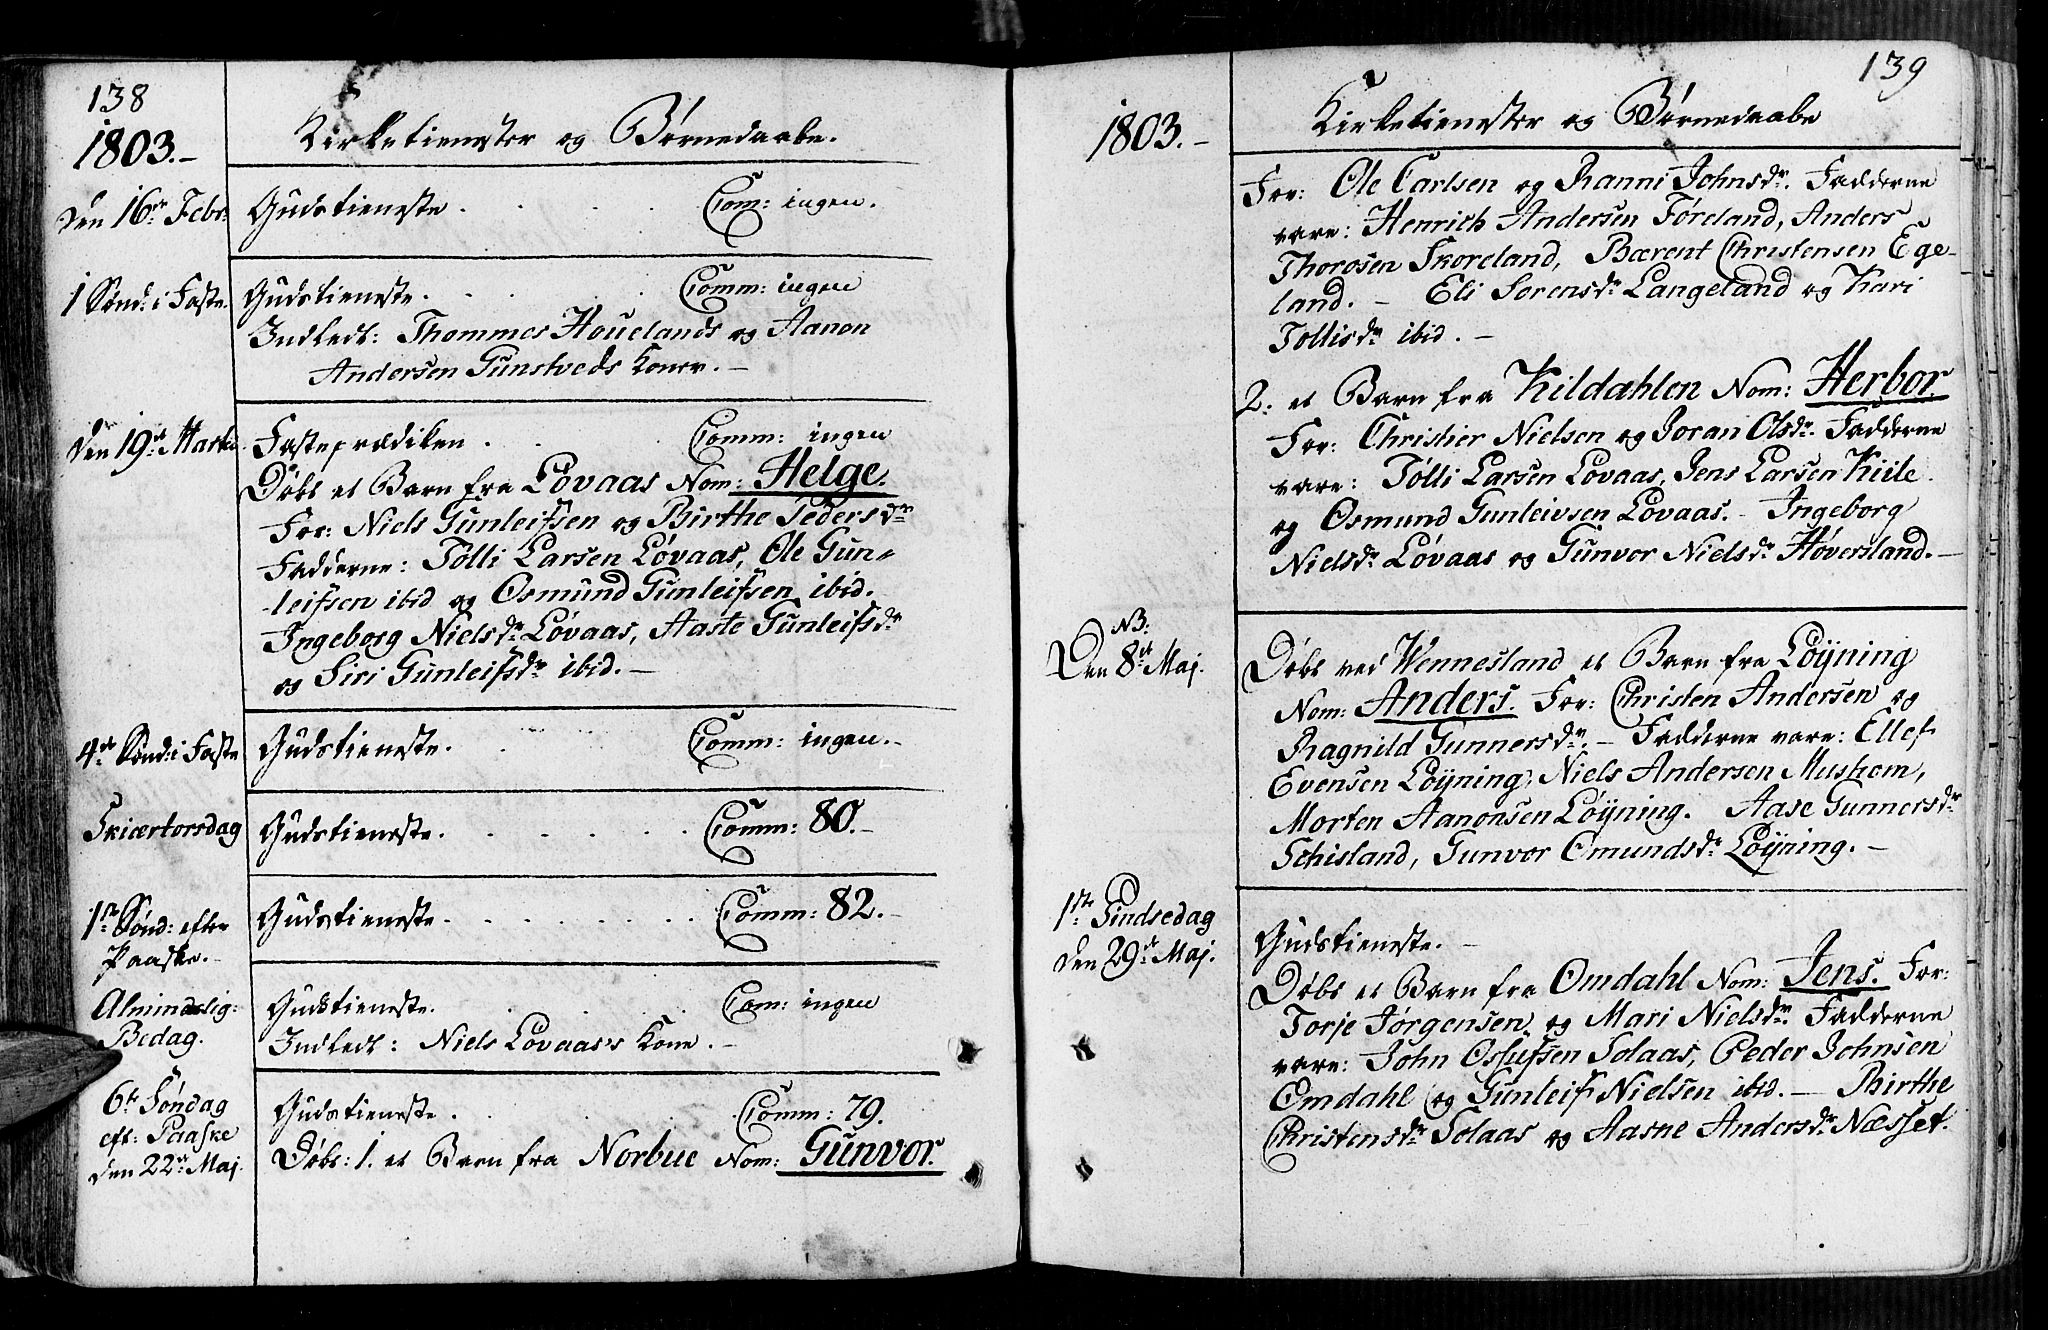 138
1803.-
Kirketienester og Børnedaabe.
den 16de Febr:
Gudstieneste . . . . Com: ingen.
1 Sønd: i Faste.
Gudstieneste. . . . . Comm: ingen
Indledt: Thommes Houelands og Aanon
Andersen Gunstveds Koner. -
den 19de Martii
Fasteprædiken . . . Comm: ingen
Døbt et Barn fra Lovaas Nom: Helge.
For: Niels Gunleifsen og Birthe Pedersdr
Fadderne: Tolli Larsen Løvaas, Ole Gun-
-leifsen ibid og Osmund Gunleifsen ibid.
Ingeborg Nielsdr Løvaas, Aaste Gunleifsdr
og Siri Gunleifsdr ibid. -
4de Sønd: i Faste
Gudstieneste. . . . Comm: ingen. -
Skiærtorsdag
Gudstieneste. . . . . . . Comm: 80. -
1ste Sønd: efter
Paaske. -
Gudstieneste. . . . . . . . Comm: 82. -
Almindelig:
Bedag.
Gudstieneste. . . . . Com: ingen
Indledt: Niels Lovaas's Kone. -
6te Søndag
eft: Paaske
den 22de Maj.
Gudstieneste . . . . . Comm: 79.
Døbt: 1. et Barn fra Norbue Nom: Gunvor.
139
1803. -
Kirketienester og Børnedaabe
For: Ole Carlsen og Ranni Johnsdr. Fadderne
vare: Henrich Andersen Føreland, Anders
Thorosen Skoreland, Bærent Christensen Ege-
land. - Eli Sorensdr Langeland og Kari
Tollisdr ibid. -
2: et Barn fra Kildahlen Nom: Herbor.
For: Christier Nielsen og Joran Olsdr. Fadderne
vare: Tolli Larsen Lovaas, Jens Larsen Kiile
og Osmund Gunleivsen Lovaas. - Ingeborg
Nielsdr Lovaas og Gunvor Nielsdr Høversland. -
NB:
Den 8de Maj.
Døbt ved Wennesland et Barn fra Löyning
Nom: Anders. For: Christen Andersen og
Ragnild Gunnersdr. - Fadderne vare: Ellef
Evensen Löyning, Niels Andersen Mushom,
Morten Aanonsen Löyning. Aase Gunnersdr
Schisland, Gunvor Omundsdr Löyning. -
1ste Pindsedag
den 29de Maj.
Gudstieneste. -
Døbt et Barn fra Omdahl Nom: Jens. For:
Torje Jørgensen og Mari Nielsdr. Fadderne
vare: John Oslufsen Solaas, Peder Johnsen
Omdahl og Gunleif Nielsen ibid. - Birthe
Christensdr Solaas og Aasne Andersdr Næsset.